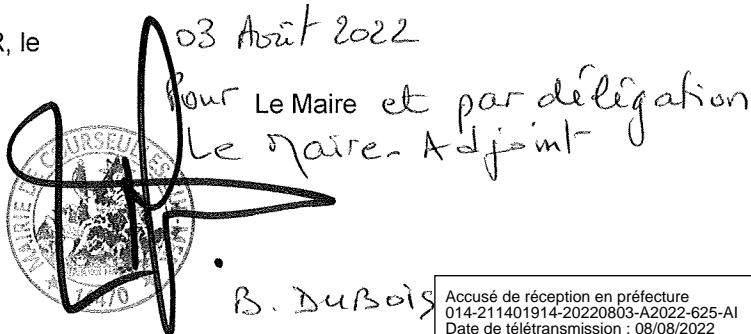 R, le 03 Août 2022
Pour Le Maire et par délégation
Le Maire-Adjoint
MAIRIE DE COURSEULLES
B. DUBOIS
Accusé de réception en préfecture
014-211401914-20220803-A2022-625-AI
Date de télétransmission : 08/08/2022